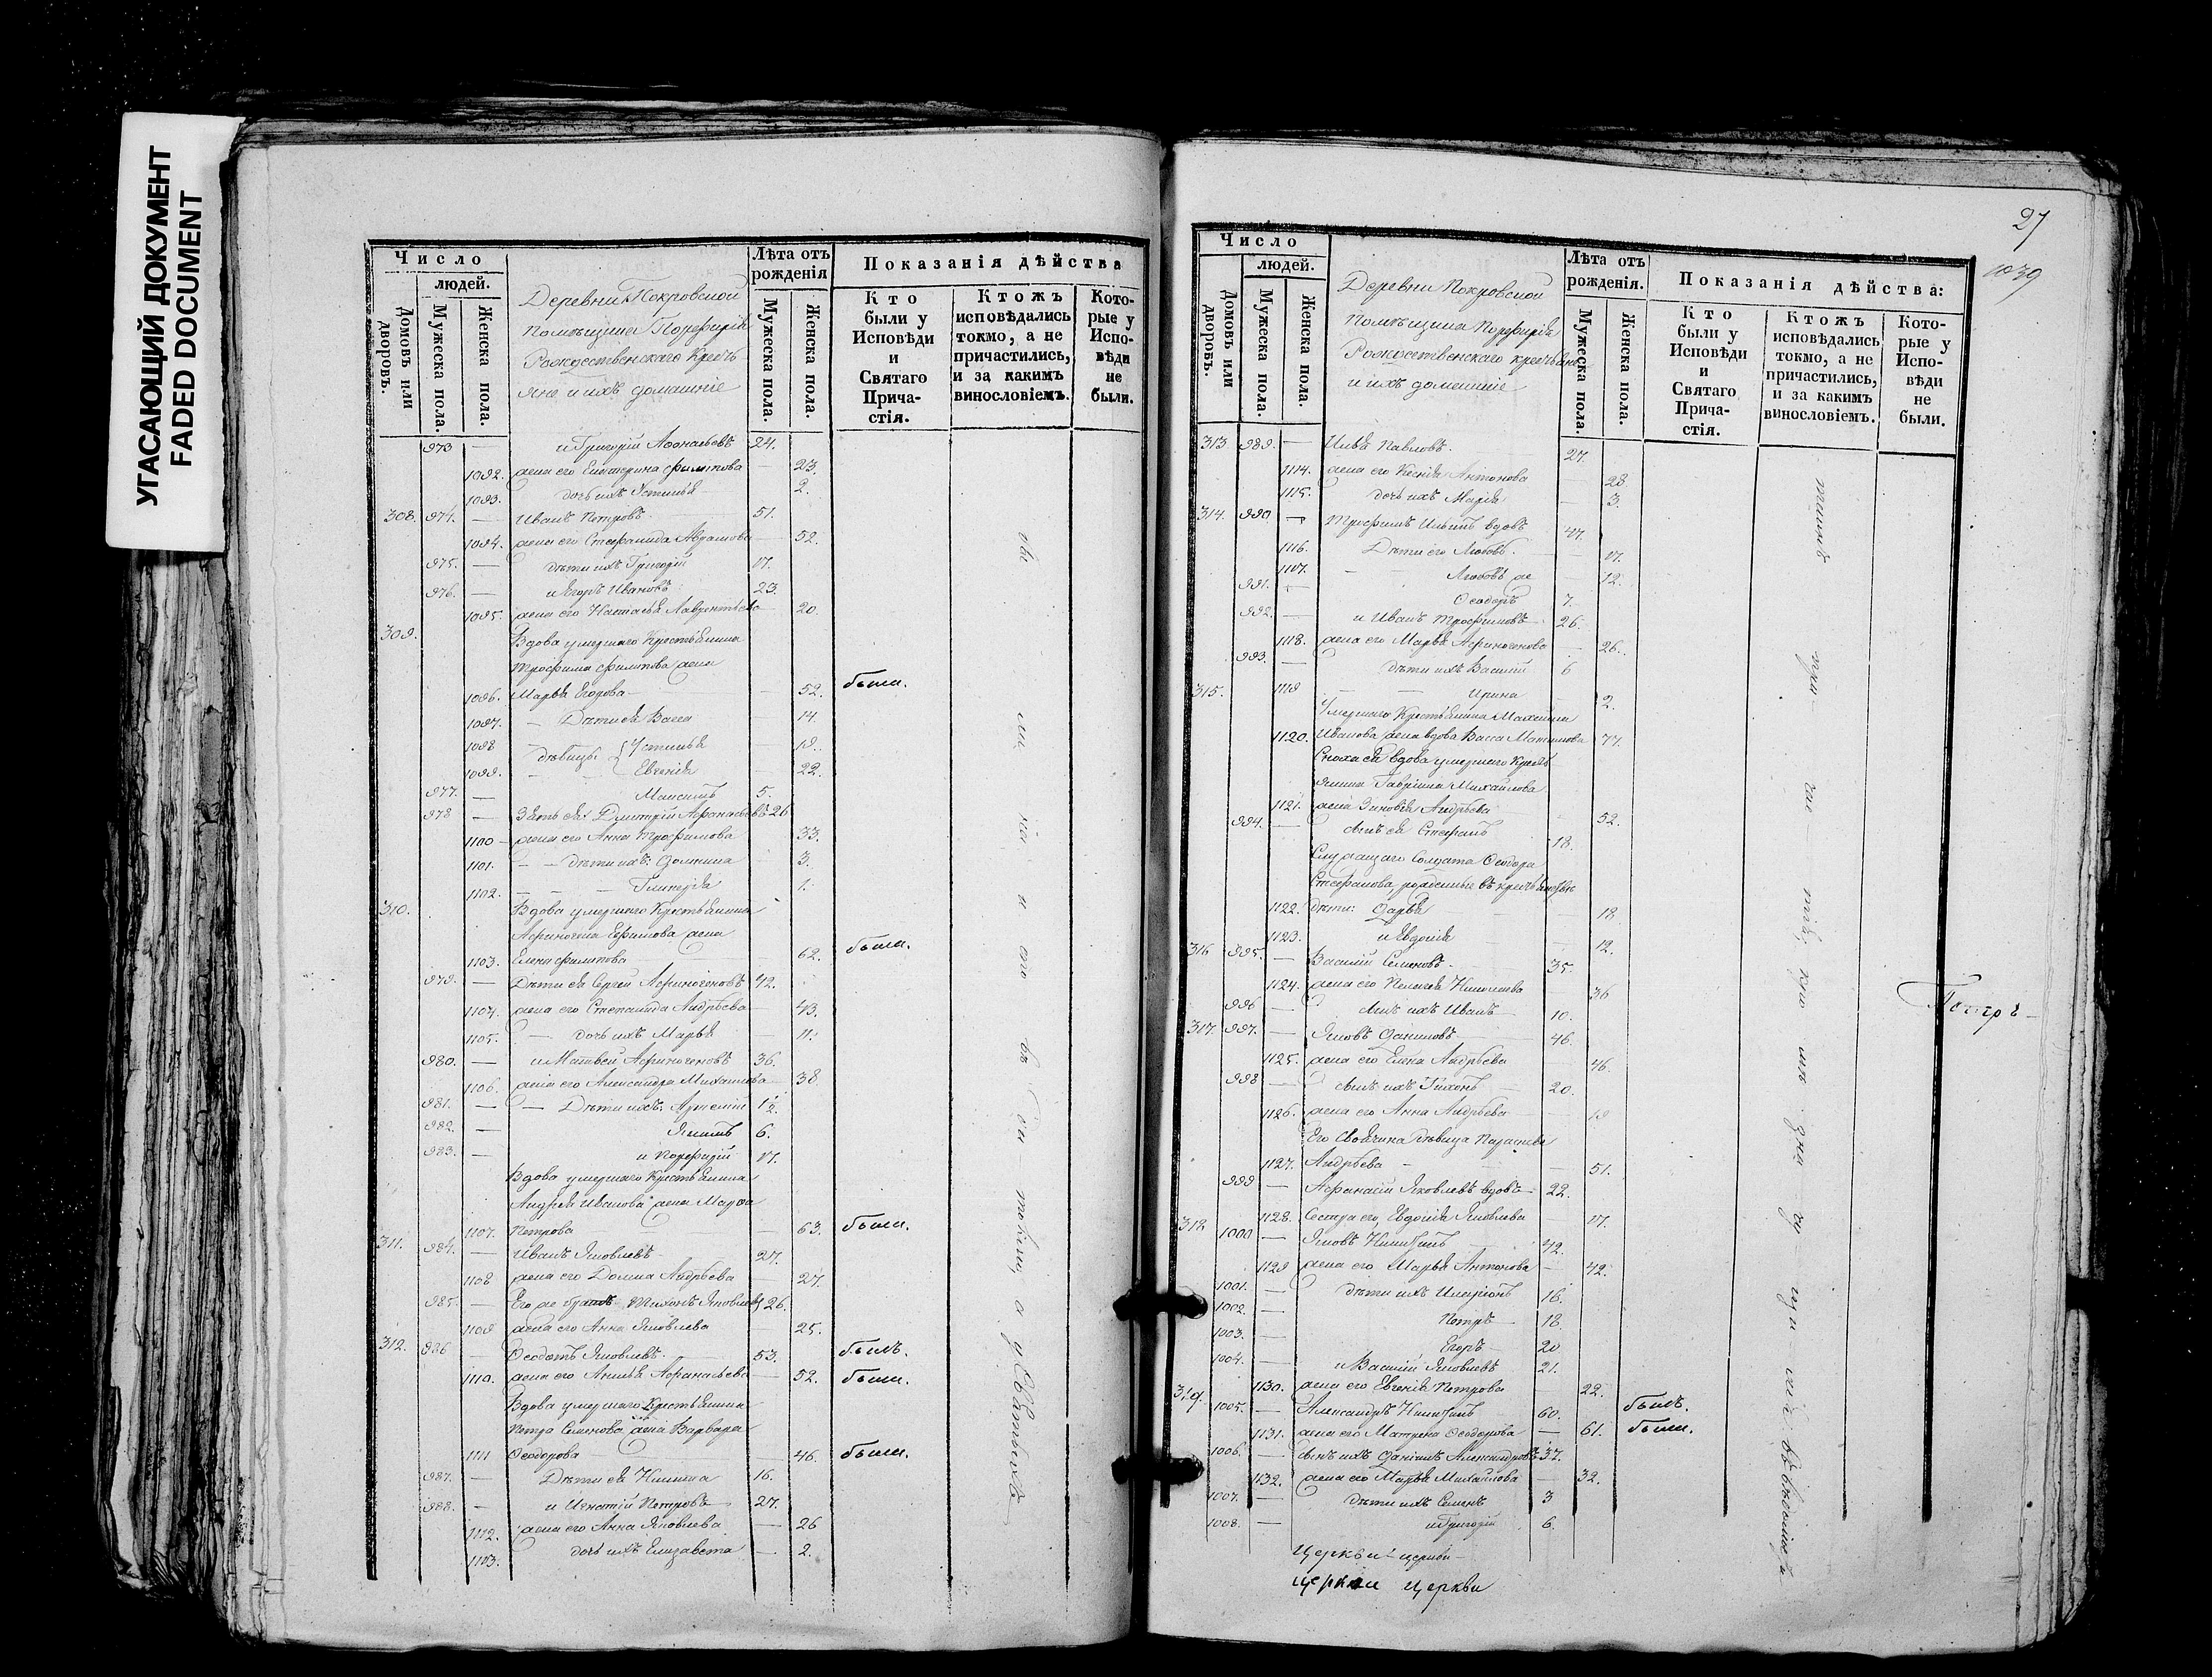 УГАСАЮЩИЙ ДОКУМЕНТ
FADED DOCUMENT
Число
людей.
Домовъ или дворовъ.
Мужеска пола.
Женска пола.
Деревни Покровской
помѣщика Порфирія
Рождественскаго кресть-
яне и ихъ домашніе
Лѣта отъ рожденія
Мужеска пола.
Женска пола.
Показанія дѣйства
Кто были у Исповѣди и Святаго Причастія.
Ктожъ исповѣдались токмо, а не причастились, и за какимъ винословіемъ.
Которые у Исповѣди не были.
973 — и Григорій Афонасьевъ 24.
1092. жена его Екатерина Филипова — 23.
1093. дочь ихъ Устинья — 2.
308. 974. — Иванъ Петровъ 51.
1094. жена его Стефанида Абрамова — 52.
975. — дѣти ихъ Григорій 17.
976. — и Егоръ Ивановъ 23.
1095. жена его Наталья Лаврентьева — 20
309. Вдова умершаго Крестьянина
Трофима Филипова жена
1096. Марья Егорова — 52. была.
1097. — Дѣти ея Васса 14.
1098 дѣвицы Устинья 19.
1099. Евгенія 22.
977. — Максимъ 5.
978 — Зять ея Дмитрій Афанасьевъ 26
1100 — жена его Анна Трофимова 33.
1101. — дѣти ихъ: Домника 3.
1102. — Гликерія 1.
310. Вдова умершаго Крестьянина
Афиногена Ефимова жена
1103. Елена Филипова 62. была.
979. — Дѣти ея Сергей Афиногеновъ 42.
1104. жена его Степанида Андрѣева 43.
1105. — дочь ихъ Марья 11.
980. — и Матвей Афиногеновъ 36.
1106. жена его Александра Михаилова 38
981. — Дѣти ихъ: Артемій 12.
982. — Якимъ 6.
983. — и Порфирій 17.
Вдова умершаго Крестьянина
Андрея Иванова жена Марѳа
1107. Петрова — 63. была.
311. 984. — Иванъ Яковлевъ 27.
1108 жена его Домна Андрѣева — 27.
985. — Его же братъ Тихонъ Яковлевъ 26.
1109 жена его Анна Яковлева — 25.
312. 986 — Ѳеодотъ Яковлевъ. 53. былъ.
1110. жена его Анисья Афанасьева — 52. была.
Вдова умершаго Крестьянина
Петра Семенова жена Варвара
1111 Ѳеодорова 46. была.
987. — Дѣти ея Никита 16.
988. — и Игнатій Петровъ 27.
1112. жена его Анна Яковлева — 26
1113. дочь ихъ Елизавета — 2.
27
1039
Число
людей.
Домовъ или дворовъ.
Мужеска пола.
Женска пола.
Деревни Покровской
помѣщика Порфирія
Рождественскаго крестьяне
и ихъ домашніе
Лѣта отъ рожденія.
Мужеска пола.
Женска пола.
Показанія дѣйства:
Кто были у Исповѣди и Святаго Причастія.
Ктожъ исповѣдались токмо, а не причастились, и за какимъ винословіемъ.
Которые у Исповѣди не были.
313 989. — Илья Павловъ. 27.
1114. жена его Ксенія Антонова — 28.
1115. дочь ихъ Марія — 3.
314. 990 — Трофимъ Ильинъ вдовъ 47.
1116. Дѣти его Любовь. — 17.
1117. Любовь же 12.
991. Ѳеодоръ 7.
992. — и Иванъ Трофимовъ 26.
1118. жена его Марья Афиногенова 26.
993. — дѣти ихъ Василій 6
1119 — Ирина 2.
315. Умершаго Крестьянина Михаила
1120. Иванова жена вдова Васса Максимова 77.
Сноха ея вдова умершаго Кресть-
янина Гавріила Михайлова
1121. жена Зиновья Андрѣева 52.
994. — сынъ ея Стефанъ 18.
Служащаго Солдата Ѳеодора
Стефанова, рожденные въ крестьянствѣ
1122. дѣти: Дарья 18
1123. и Евдокія 12.
316 995. — Василій Семеновъ. 35.
1124. жена его Пелагея Николаева 36
996 — сынъ ихъ Иванъ 10.
317. 997. — Яковъ Даниловъ 46.
1125. жена его Елена Андрѣева 46.
998 — сынъ ихъ Тихонъ 20.
1126. жена его Анна Андрѣева 19
Его Своячина дѣвица Параскева
1127. Андрѣева — 51.
999 — Афанасій Яковлевъ вдовъ 22.
1128. Сестра его, Евдокія Яковлева 17.
318 1000 — Яковъ Никитинъ 42.
1129 жена его Марья Антонова 42.
1001. — дѣти ихъ Иларіонъ 16.
1002. — Петръ 18.
1003. — Егоръ 20
1004. — и Василій Яковлевъ 21.
1130. жена его Евгенія Петрова 22.
319. 1005. — Александръ Никитинъ 60. былъ.
1131. жена его Матрена Ѳеодорова — 61. была.
1006. сынъ ихъ Даніилъ Александровъ 37.
1132. жена его Марья Михайлова — 32.
1007. — дѣти ихъ Семенъ 3
1008. — и Григорій 6.
Церкви церкви
церкви церкви
Петръ